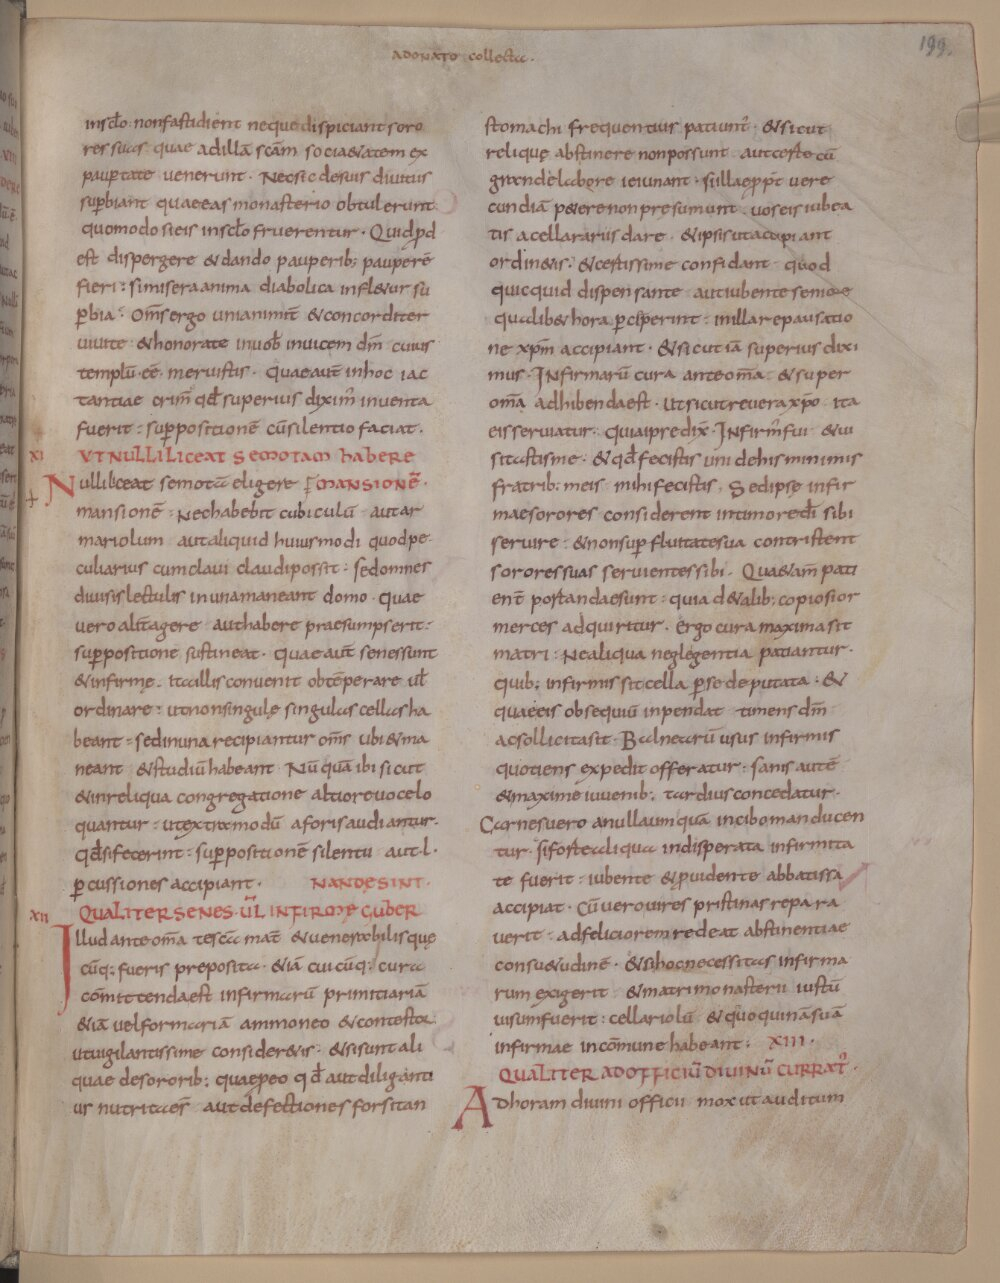 ADONATO collecta.
199.
insclo nonfastidient neque dispiciant soro
res suas quae adillā scām sociaetatem ex
paupertate venerunt. Necsic desuis divitus
supbiant quaeeas monasterio obtulerunt
quomodo sieis insclo fruerentur. Quidpd
est dispergere & dando pauperib; pauperē
fieri: simisera anima diabolica infletur su
pbia. Om̄s ergo unianimit̄ & concorditer
vivite & honorate invob invicem dm̄ cuius
templū eē meruistis. Quae aut̄ inhoc iac
tantiae crim̄ qd superius dixim inventa
fuerit: suppositionē cūsilentio faciat.
XI UT NULLI LICEAT SEMOTAM HABERE
Nulli liceat semota eligere MANSIONĒ.
mansionē. Nec habebit cubiculū aut ar
mariolum aut aliquid huiusmodi quod pe
culiarius cum clavi claudi possit: sed omnes
divisis lectulis in una maneant domo. quae
vero alit̄ agere aut habere praesumpserit:
suppositione sustineat. quae aut̄ senes sunt
& infirmę. ita illis convenit obtēperare ul
ordinare: ut non singulę singulas cellas ha
beant: sed in una recipiantur om̄s ubi & ma
neant & studiū habeant Nū quā ibi sicut
& in reliqua congregatione altiore vocelo
quantur: ut extra modū aforis audiantur.
qd si fecerint: suppositionē silentii aut. l.
pcussiones accipiant. NANDE SINT.
XII QUALITER SENES. ŪL INFIRMĘ GUBER
Illud ante om̄a testa mat̄ & venerabilis quę
cūq; fueris preposita & iā cui cūq; cura
cōmittenda est infirmarū primitiariā
& iā vel formariā ammoneo & contestor
ut vigilantissime consideretis. & si sunt ali
quae de sororib; quae peo qd aut diliganti
us nutritae s̄ aut defectiones forsitan
stomachi frequentius patiunt̄. & sicut
relique abstinere non possunt aut ceste cū
grandelabore ieiunant. si illae ppt vere
cundiā petere non presumunt vos eis iubea
tis a cellarariis dare. & ipsis ut accipiant
ordinetis. & certissime confidant quod
quicquid dispensante aut iubente seniore
qualib& hora pceperint: in illa repausatio
ne xpm̄ accipiant. & sicut iā superius dixi
mus. Infirmarū cura ante om̄a & super
om̄a adhibenda est. ut sicut revera xpo ita
eis serviatur. quia ipse dix. Infirm fui & vi
sitastis me. & qd fecistis uni de his minimis
fratrib; meis mihi fecistis. Sed ipse infir
mae sorores considerent in timore di sibi
servire. & non supfluitate sua contristent
sorores suas servientes sibi. Quae tam pati
ent̄ portandae sunt: quia d& alib; copiosior
merces adquiritur. Ergo cura maxima sit
matri: Ne aliqua neglegentia patiantur.
quib; infirmis sit cella pse deputata: &
quae eis obsequiū inpendat timens dm̄
ac sollicita sit. Balnearū usus infirmis
quotiens expedit offeratur. sanis autē
& maxime iuvenib; tardius concedatur.
Carnes vero a nulla umquā in cibo manducen
tur. si forte aliqua in disperata infirmita
te fuerit: iubente & pvidente abbatissa
accipiat. Cū vero vires pristinas repara
verit: ad feliciorem redeat abstinentiae
consu&udinē. & si hoc necessitas infirma
rum exigerit & matri monasterii iustū
visum fuerit: cellariolū & quoquinā suā
infirmae in cōmune habeant: XIII.
QUALITER AD OFFICIŪ DIVINŪ CURRAT̄.
Ad horam divini officii mox ut auditum